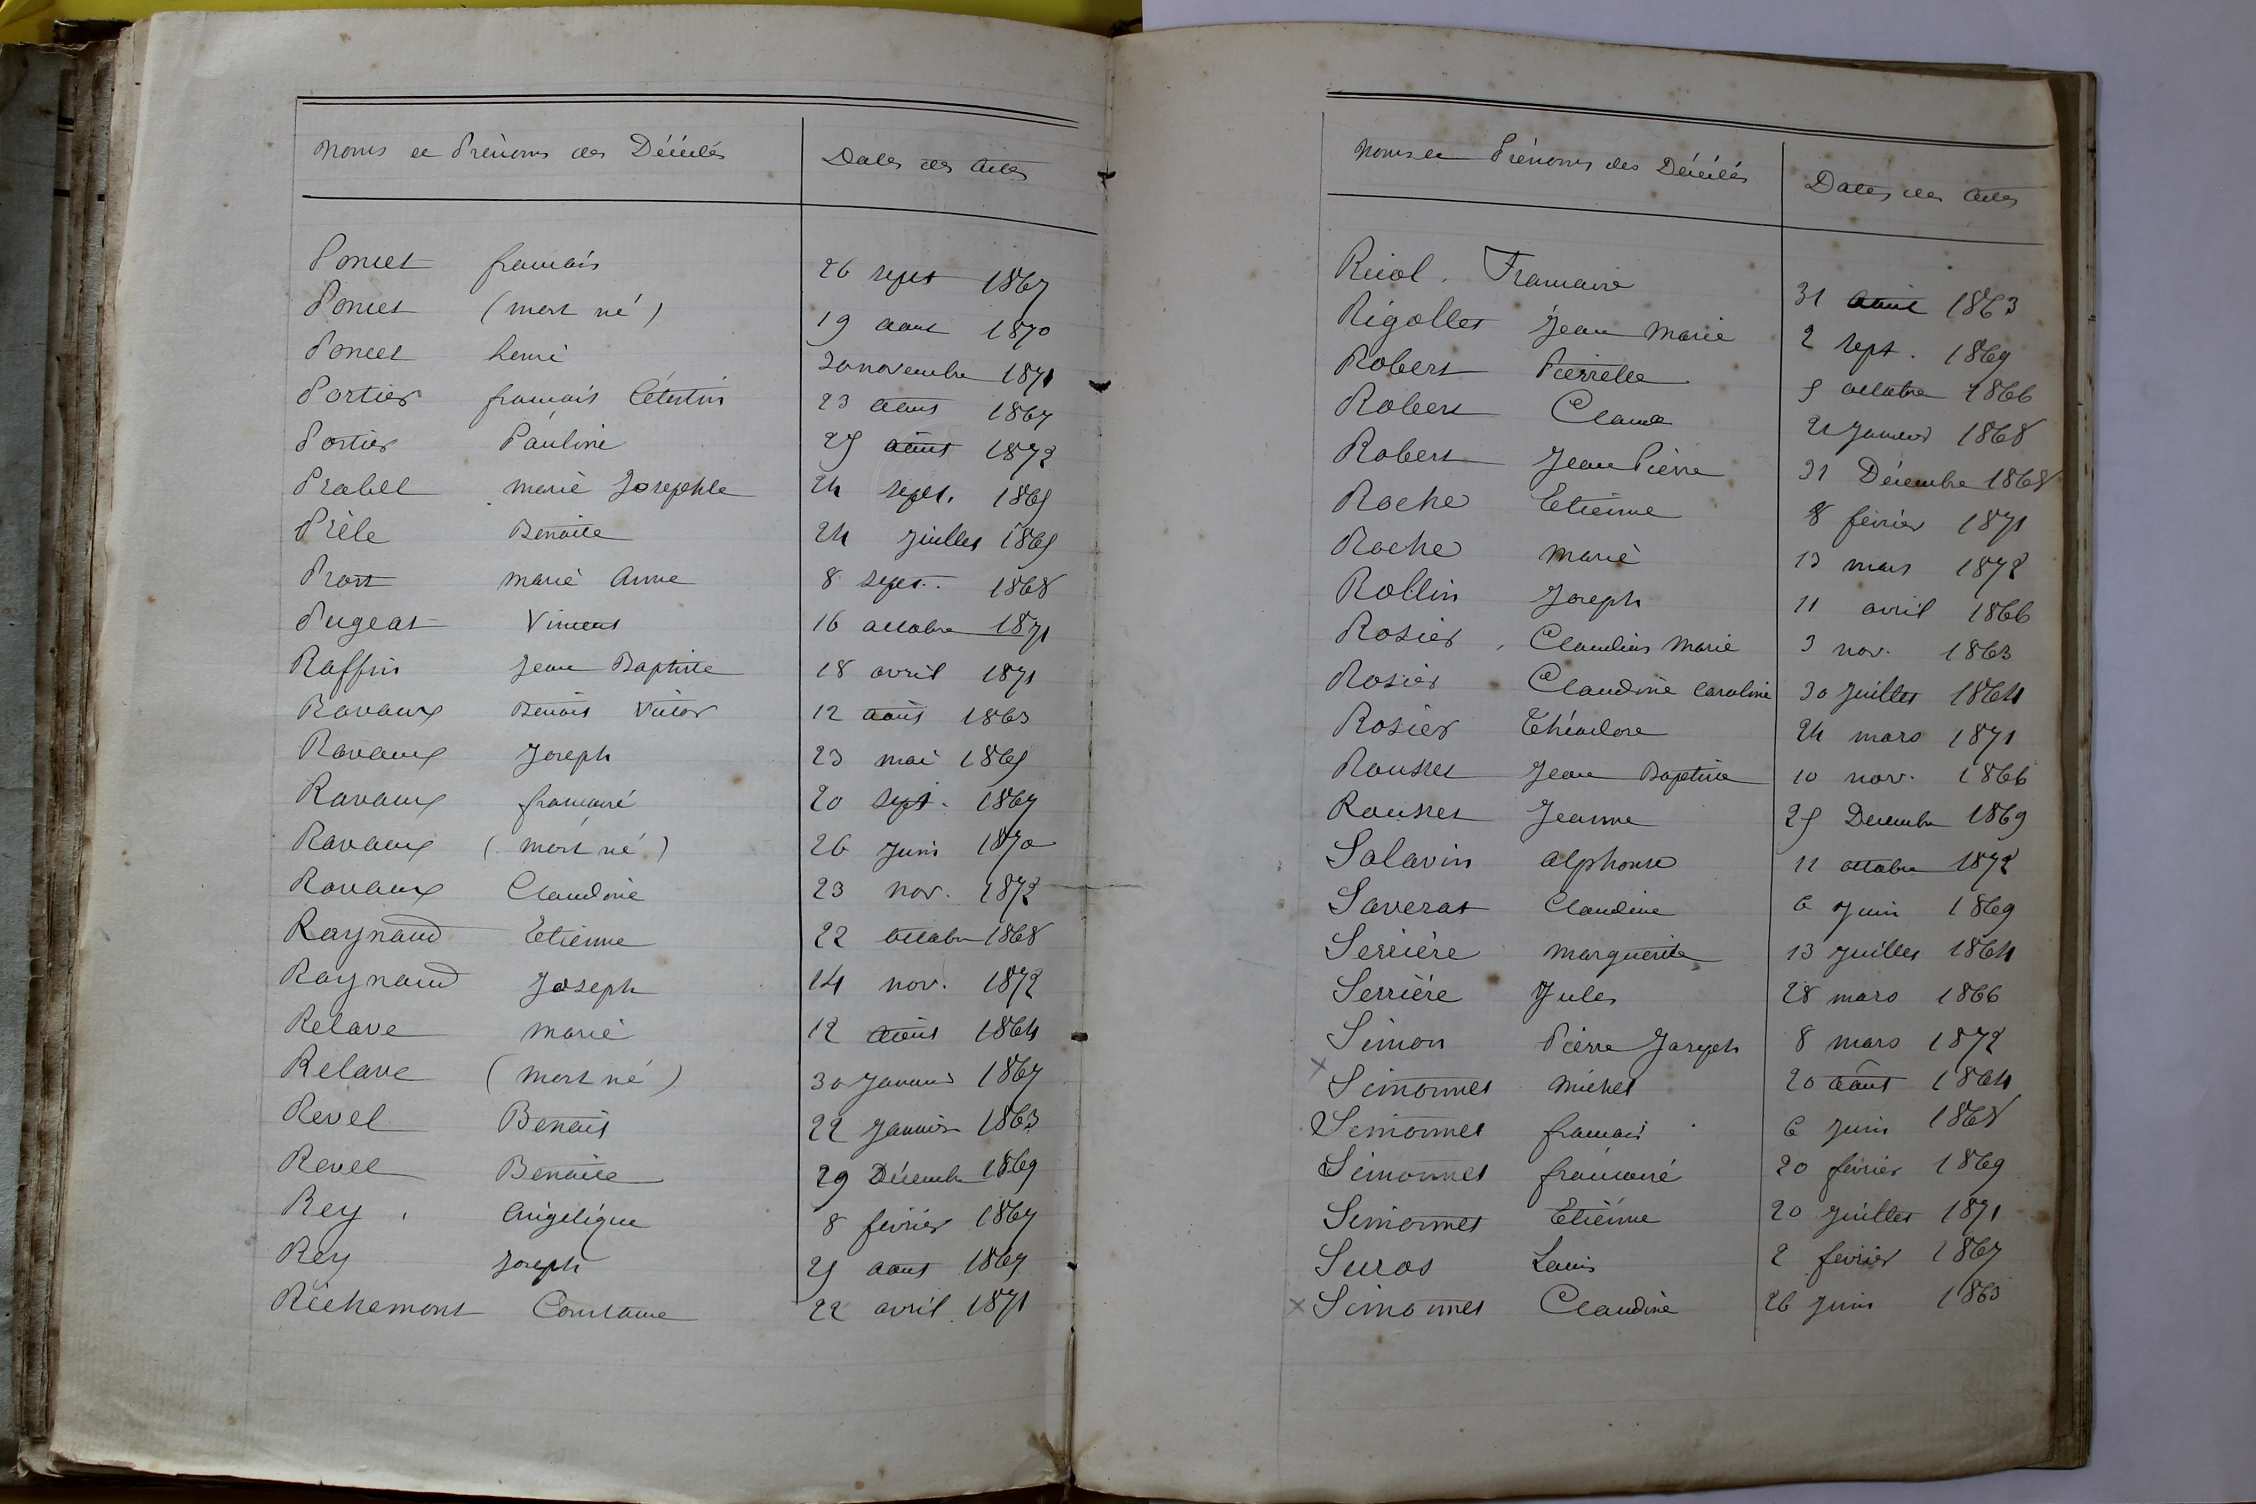 Noms et Prénoms des Décédés Dates des Actes
Poncet françois 26 sept 1867
Poncet (mort né) 19 aout 1870
Poncet henri 20 novembre 1871
Portier françois Célestin 23 aout 1867
Portier Pauline 25 août 1872
Prabel marie Josephte 24 sept. 1865
Prèle Benoite 24 juillet 1865
Prost marie anne 8 sept. 1868
Pugeat Vincent 16 octobre 1871
Raffin jean Baptiste 18 avril 1871
Ravaux Benoit Victor 12 août 1863
Ravaux joseph 23 mai 1865
Ravaux françoise 20 sept. 1867
Ravaux (mort né) 26 juin 1870
Ravaux Claudine 23 nov. 1872
Raynaud Etienne 22 octobre 1868
Raynaud Joseph 14 nov. 1872
Relave marie 12 août 1864
Relave (mort né) 30 janvier 1867
Revel Benoit 22 janvier 1863
Revel Benoite 29 Décembre 1869
Rey Angélique 8 février 1867
Rey joseph 25 aout 1867
Richemont Constance 22 avril 1871
Noms et Prénoms des Décédés Dates des Actes
Ricol Françoise 31 1863
Rigollet jean Marie 2 sept. 1869
Robert Pierrette 5 octobre 1866
Robert Claude 21 janvier 1868
Robert jean Pierre 31 Décembre 1868
Roche Etienne 8 février 1871
Roche marie 13 mars 1872
Rollin joseph 11 avril 1866
Rosier Claudius Marie 3 nov. 1863
Rosier Claudine Caroline 30 juillet 1864
Rosier Théodore 24 mars 1871
Rousset jean Baptiste 10 nov. 1866
Rousset jeanne 25 Decembre 1869
Salavin alphonse 11 octobre 1872
Saverat Claudine 6 juin 1869
Serrière marguerite 13 juillet 1864
Serrière jules 28 mars 1866
Simon Pierre joseph 8 mars 1872
x Simonnet michel 20 août 1864
Simonnet françois 6 juin 1868
Simonnet françoise 20 février 1869
Simonnet Etienne 20 juillet 1871
Suros Louis 2 fevrier 1867
x Simonnet Claudine 26 juin 1863